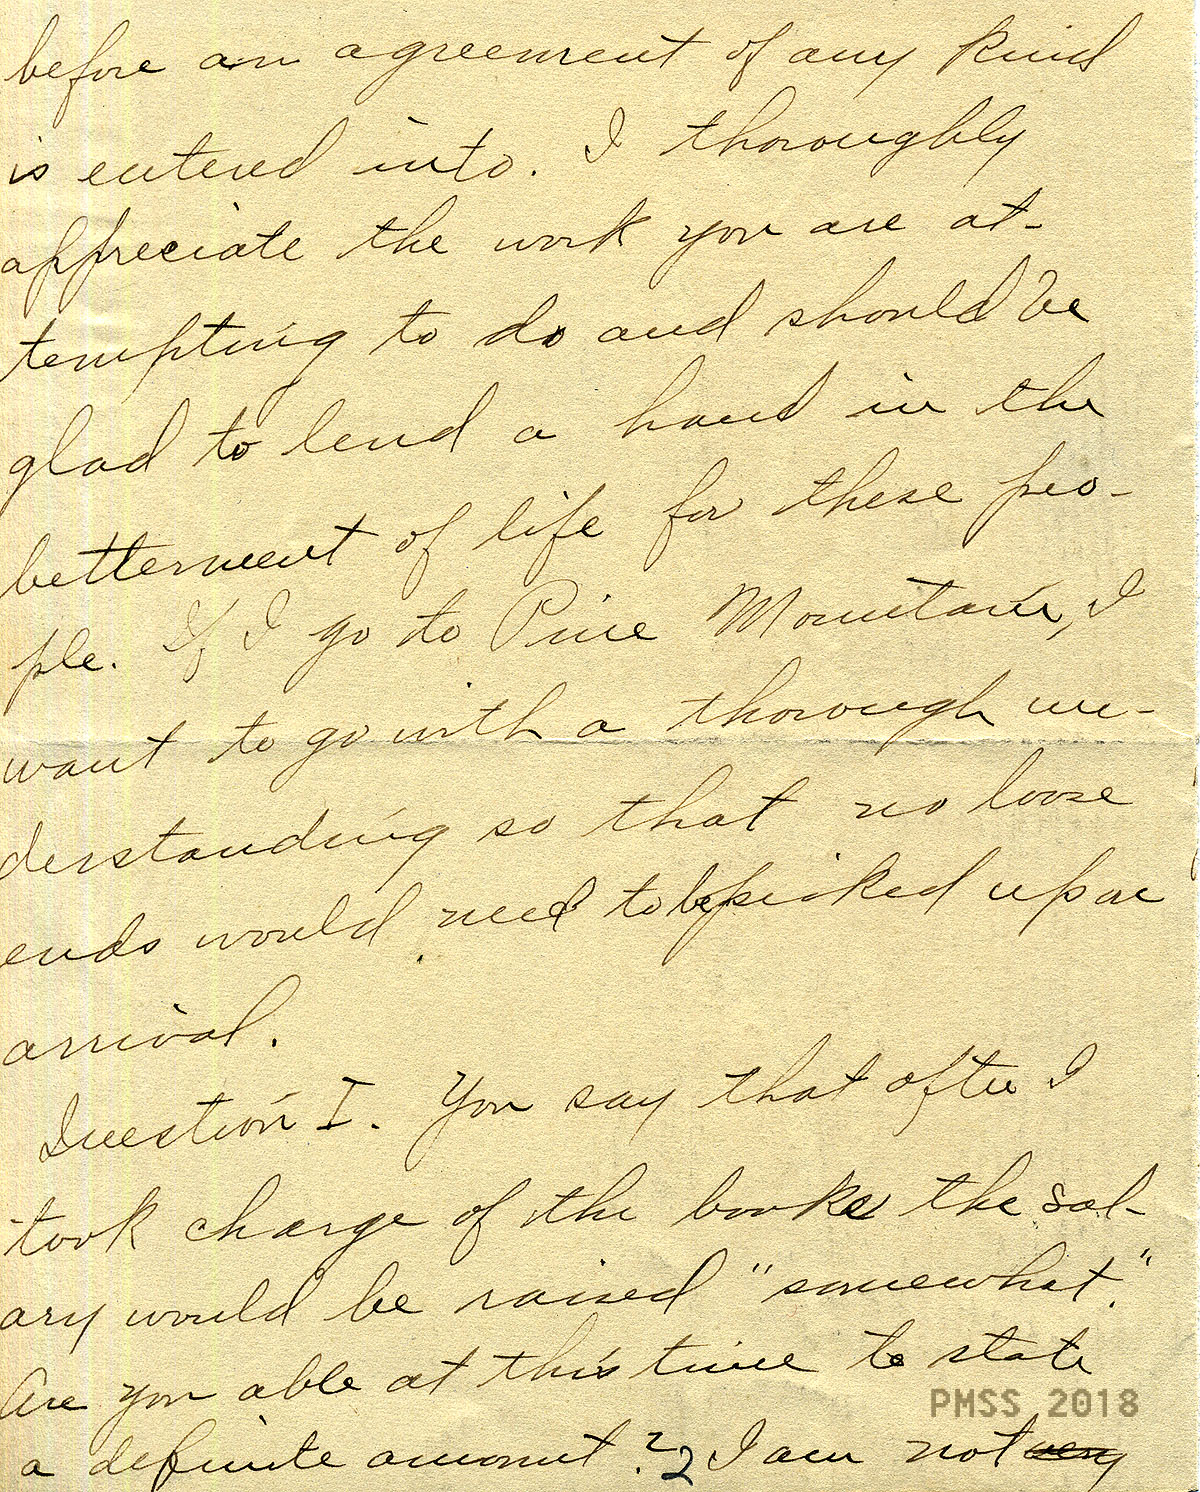 before an agreement of any kind
is entered into. I thoroughly
appreciate the work you are at-
tempting to do and should be
glad to lend a hand in the
betterment of life for these peo-
ple. If I go to Pine Mountain, I
want to go with a thorough un-
derstanding so that no loose
ends would need to be picked up on
arrival.
Question I. You say that after I
took charge of the books the sal-
ary would be raised "somewhat."
Are you able at this time to state
PMSS 2018
a definite amount? 2 I am not very